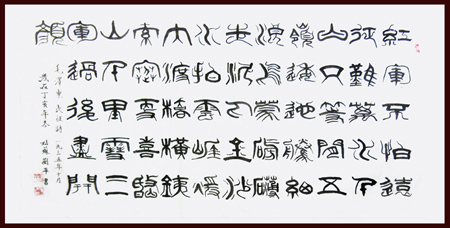 紅軍不怕遠
征難萬水千
山只等閒五
嶺逶迤騰細
浪烏蒙磅礴
走泥丸金沙
水拍雲崖暖
大渡橋橫鐵
索寒更喜岷
山千里雪三
軍過後盡開
顏
毛澤東長征詩一九三五年十月
歲在丁亥年冬